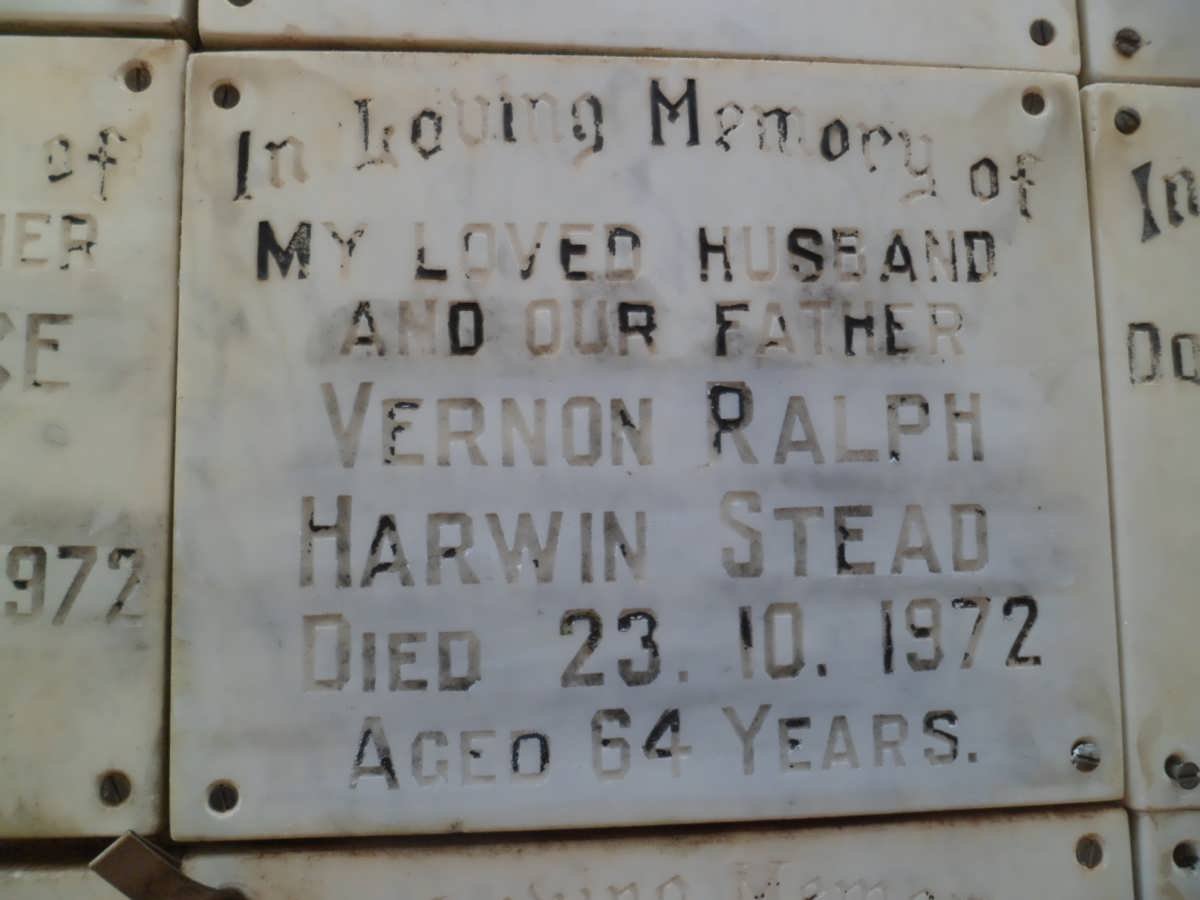 In Loving Memory of
MY LOVED HUSBAND
AND OUR FATHER
VERNON RALPH
HARWIN STEAD
DIED 23. 10. 1972
AGED 64 YEARS.
of
1972
In
Memory